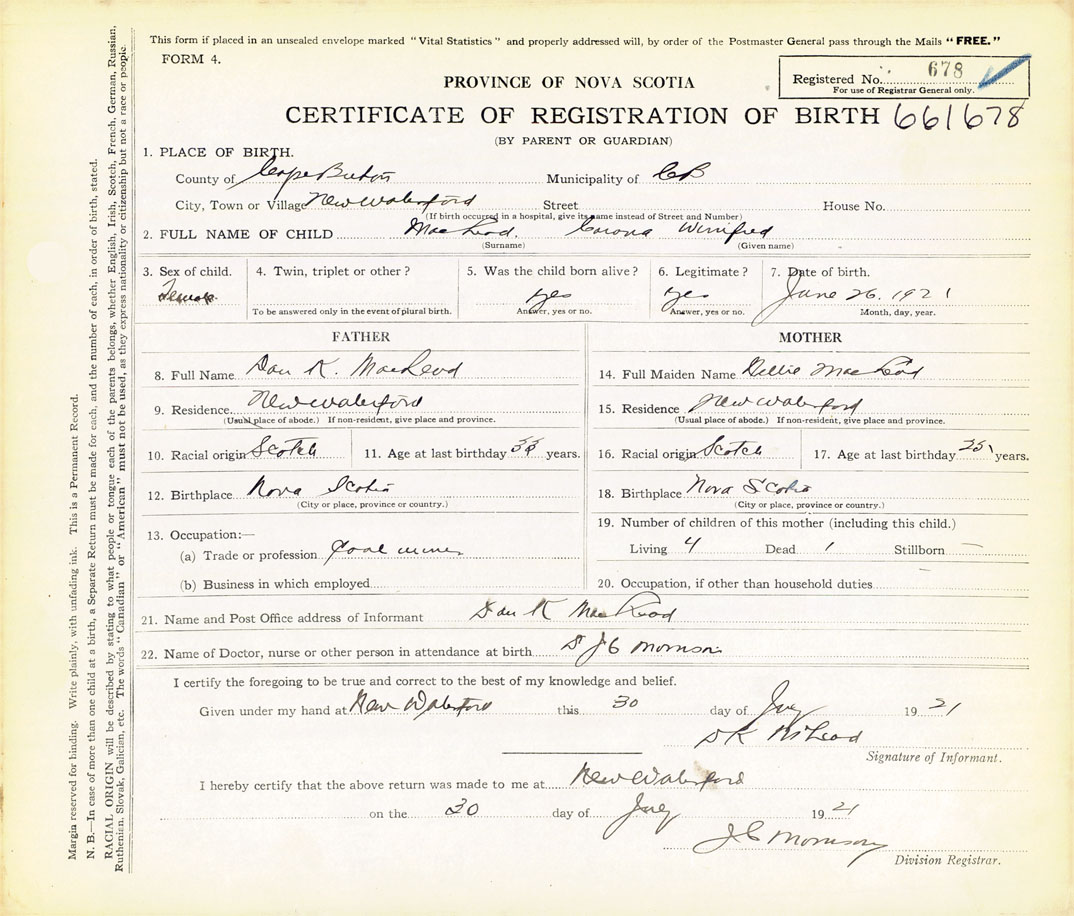 This form if placed in an unsealed envelope marked "Vital Statistics" and properly addressed will, by order of the Postmaster General pass through the Mails "FREE."
FORM 4.
Registered No. 678
For use of Registrar General only.
PROVINCE OF NOVA SCOTIA
CERTIFICATE OF REGISTRATION OF BIRTH 661678
(BY PARENT OR GUARDIAN)
1. PLACE OF BIRTH.
County of Cape Breton Municipality of CB
City, Town or Village New Waterford Street House No.
(If birth occurred in a hospital, give its name instead of Street and Number)
2. FULL NAME OF CHILD MacLeod. Corona Winifred
(Surname) (Given name)
3. Sex of child. 4. Twin, triplet or other? 5. Was the child born alive? 6. Legitimate? 7. Date of birth.
Female yes yes June 26. 1921
To be answered only in the event of plural birth. Answer, yes or no. Answer, yes or no. Month, day, year.
FATHER
8. Full Name Dan K. MacLeod
9. Residence New Waterford
(Usual place of abode.) If non-resident, give place and province.
10. Racial origin Scotch 11. Age at last birthday years.
12. Birthplace Nova Scotia
(City or place, province or country.)
13. Occupation:—
(a) Trade or profession Coal miner
(b) Business in which employed
MOTHER
14. Full Maiden Name MacLeod
15. Residence New Waterford
(Usual place of abode.) If non-resident, give place and province.
16. Racial origin Scotch 17. Age at last birthday 35 years.
18. Birthplace Nova Scotia
(City or place, province or country.)
19. Number of children of this mother (including this child.)
Living 4 Dead 1 Stillborn —
20. Occupation, if other than household duties
21. Name and Post Office address of Informant Dan K MacLeod
22. Name of Doctor, nurse or other person in attendance at birth J C Morrison
I certify the foregoing to be true and correct to the best of my knowledge and belief.
Given under my hand at New Waterford this 30 day of 1921
D K McLeod
Signature of Informant.
I hereby certify that the above return was made to me at New Waterford
on the 30 day of 1921
J C Morrison
Division Registrar.
Margin reserved for binding. Write plainly, with unfading ink. This is a Permanent Record.
N. B.—In case of more than one child at a birth, a Separate Return must be made for each, and the number of each, in order of birth, stated.
RACIAL ORIGIN will be described by stating to what people or tongue each of the parents belongs, whether English, Irish, Scotch, French, German, Russian,
Ruthenian, Slovak, Galician, etc. The words "Canadian" or "American" must not be used, as they express nationality or citizenship but not a race or people.